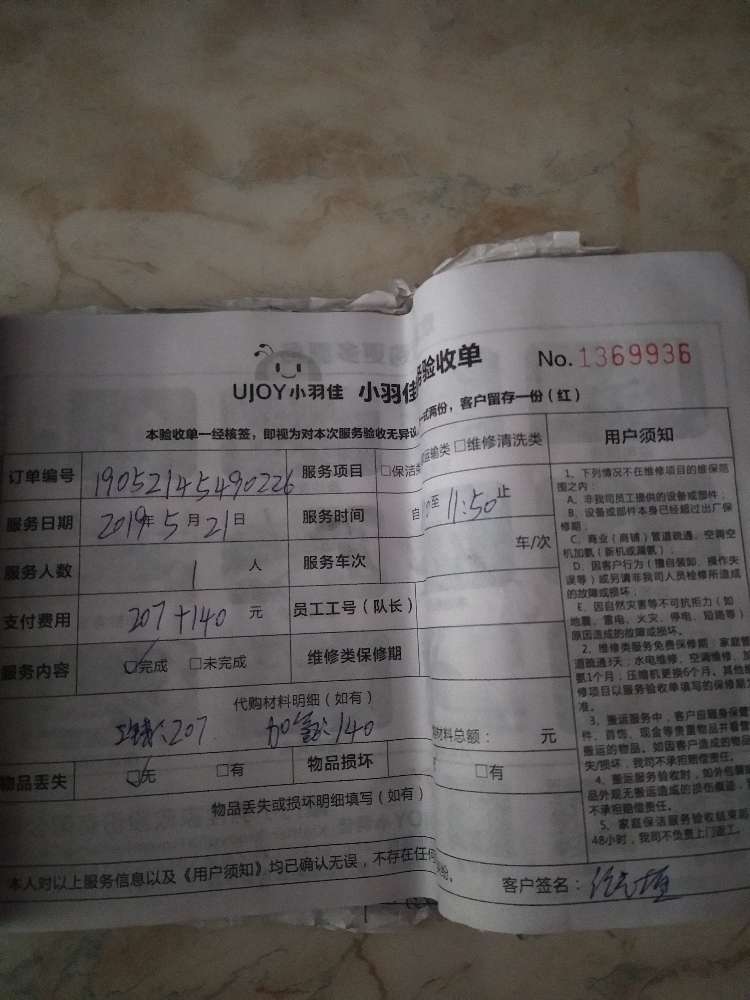 验收单 No.1369936
UJOY小羽佳 小羽佳
一式两份，客户留存一份（红）
本验收单一经核签，即视为对本次服务验收无异议
订单编号 19052145490226 服务项目 □保洁 运输类 □维修清洗类 用户须知
服务日期 2019年5月21日 服务时间 自 至 11:50止
服务人数 1 人 服务车次 车/次
支付费用 207+140 元 员工工号（队长）
服务内容 ☑完成 □未完成 维修类保修期
代购材料明细（如有）
207 加氨:140 材料总额： 元
物品丢失 ☑无 □有 物品损坏 □有
物品丢失或损坏明细填写（如有）
本人对以上服务信息以及《用户须知》均已确认无误，不存在任何
客户签名：
1、下列情况不在维修项目的维保范
围之内：
A、非我司员工提供的设备或部件；
B、设备或部件本身已经超过出厂保
修期；
C、商业（商铺）管道疏通、空调空
机加氨（新机或漏氨）；
D、因客户行为（擅自装卸、操作失
误等）或另请非我司人员检修所造成
的故障或损坏；
E、因自然灾害等不可抗拒力（如
地震、雷电、火灾、停电、短路等）
原因造成的故障或损坏。
2、维修类服务免费保修期：家庭管
道疏通3天；水电维修、空调维修、加
氨1个月；压缩机更换6个月。其他维
修项目以服务验收单填写的保修期为
准。
3、搬运服务中，客户应随身保管
件、首饰、现金等贵重物品并看管
搬运的物品。如因客户造成的物品
失/损坏，我司不承担赔偿责任。
4、搬运服务验收时，如外包装
品外观无搬运造成的损伤痕迹，
不承担赔偿责任。
5、家庭保洁服务验收结束后
48小时，我司不负责上门返工。